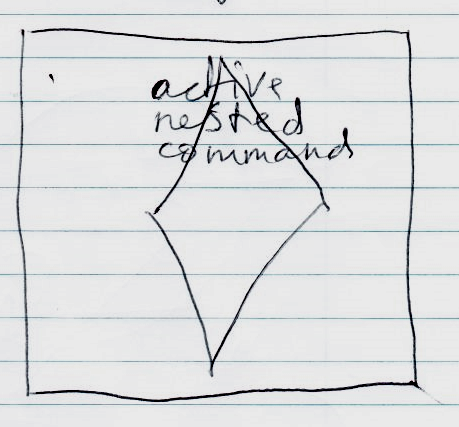 active
nested
command